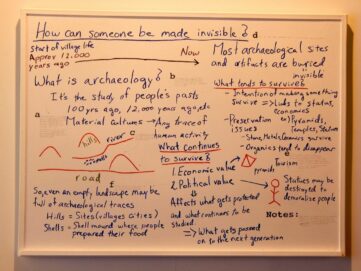 How can someone be made invisible?
d
Start of village life
Approx 12,000
years ago
Now
Most archaeological sites
and artifacts are buried
invisible
What is archaeology?
b
It's the study of people's pasts
100 yrs ago, 12,000 years ago, etc
a
Material cultures → Any trace of
human activity
c
hills
river
mounds
road
f
So, even an empty landscape may be
full of archaeological traces
Hills = Sites (villages cities)
Shells = Shell mound where people
prepared their food
What tends to survive?
- Intention of making something
survive => Links to status,
economics
- Preservation => Pyramids,
issues temples, statues
- Stone, Metals, Ceramics survive
- Organics tend to disappear
What continues
to survive?
e
1. Economic value
Tourism
pyramids
2. Political value →
Statues may be
destroyed to
demoralise people
Affects what gets protected
and what continues to be
studied
=> What gets passed
on to the next generation
Notes: